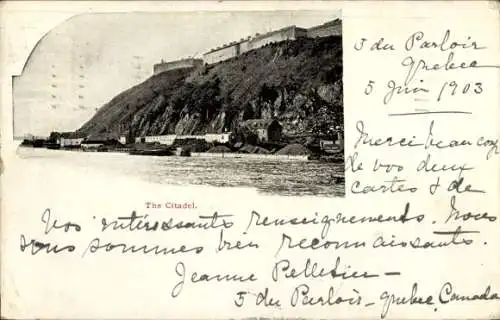 5 du Parloir
Quebec
5 Juin 1903
Merci beaucoup
de vos deux
cartes & de
The Citadel.
Vos intéressants renseignements. Nous
vous sommes bien reconnaissants.
Jeanne Pelletier —
5 du Parloir - Quebec, Canada